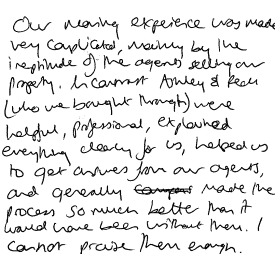 Our moving experience was made
very complicated, mainly by the
ineptitude of the agents selling our
property. In contrast Ashley & Reeu
(who we bought through) were
helpful, professional, explained
everything clearly for us, helped us
to get answers from our agents,
and generally made the
process so much better than it
would have been without them. I
cannot praise them enough.